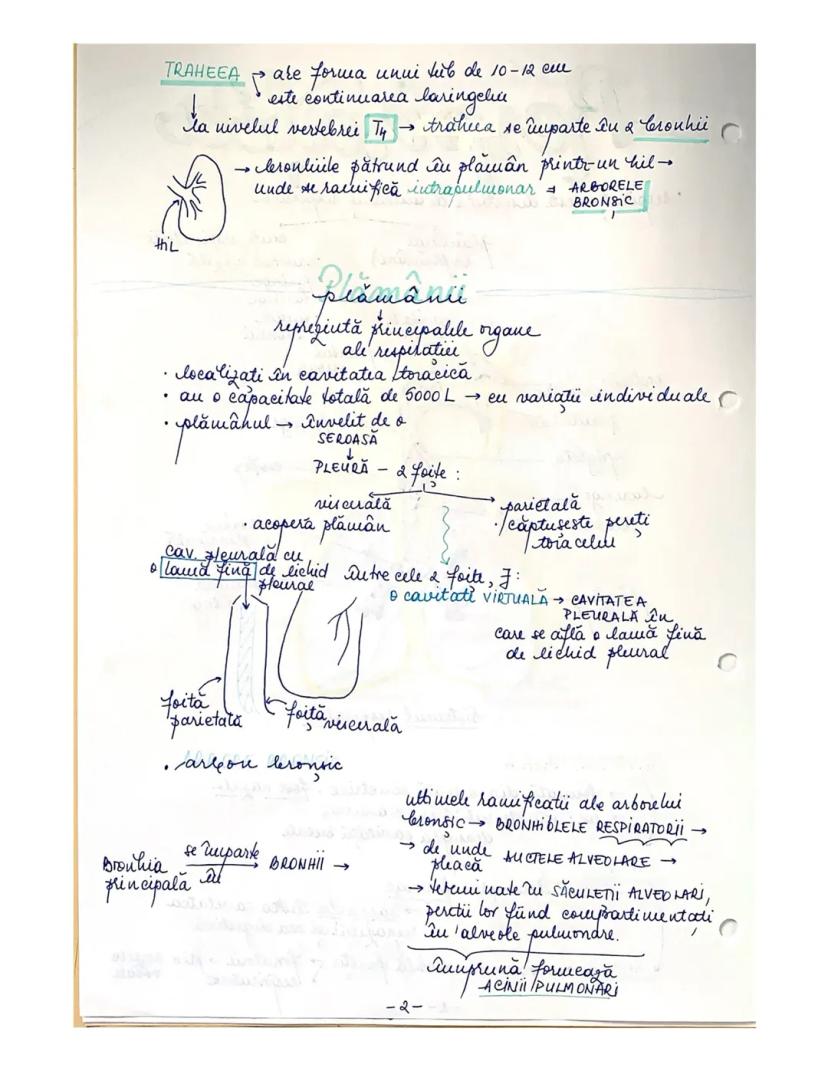 TRAHEEA → are forma unui tub de 10-12 cm
• este continuarea laringelui
↓
la nivelul vertebrei T4 → traheea se împarte în 2 bronhii
→ bronhiile pătrund în plămân printr-un hil →
unde se ramifică intrapulmonar = ARBORELE
BRONȘIC
HIL
Plămânii
plămânii
↓
reprezintă principalele organe
ale respirației
• localizați în cavitatea toracică
• au o capacitate totală de 5000 L → cu variații individuale
• plămânul → învelit de o
SEROASĂ
↓
PLEURĂ - 2 foițe :
viscerală
• acoperă plămân
parietală
• căptușește pereți
toracelui
cav. pleurală cu
o lamă fină de lichid
pleural
între cele 2 foițe, Ǝ:
o cavitate VIRTUALĂ → CAVITATEA
PLEURALĂ în
care se află o lamă fină
de lichid pleural
foiță
parietală
foiță
viscerală
• arbore bronșic
ultimele ramificații ale arborelui
bronșic → BRONHIOLELE RESPIRATORII →
→ de unde
pleacă DUCTELE ALVEOLARE →
→ terminate în SĂCULEȚII ALVEOLARI,
pereții lor fiind compartimentați
în alveole pulmonare.
Bronhia
principală
se împarte
în
BRONHII →
împreună formează
ACINII PULMONARI
-2-